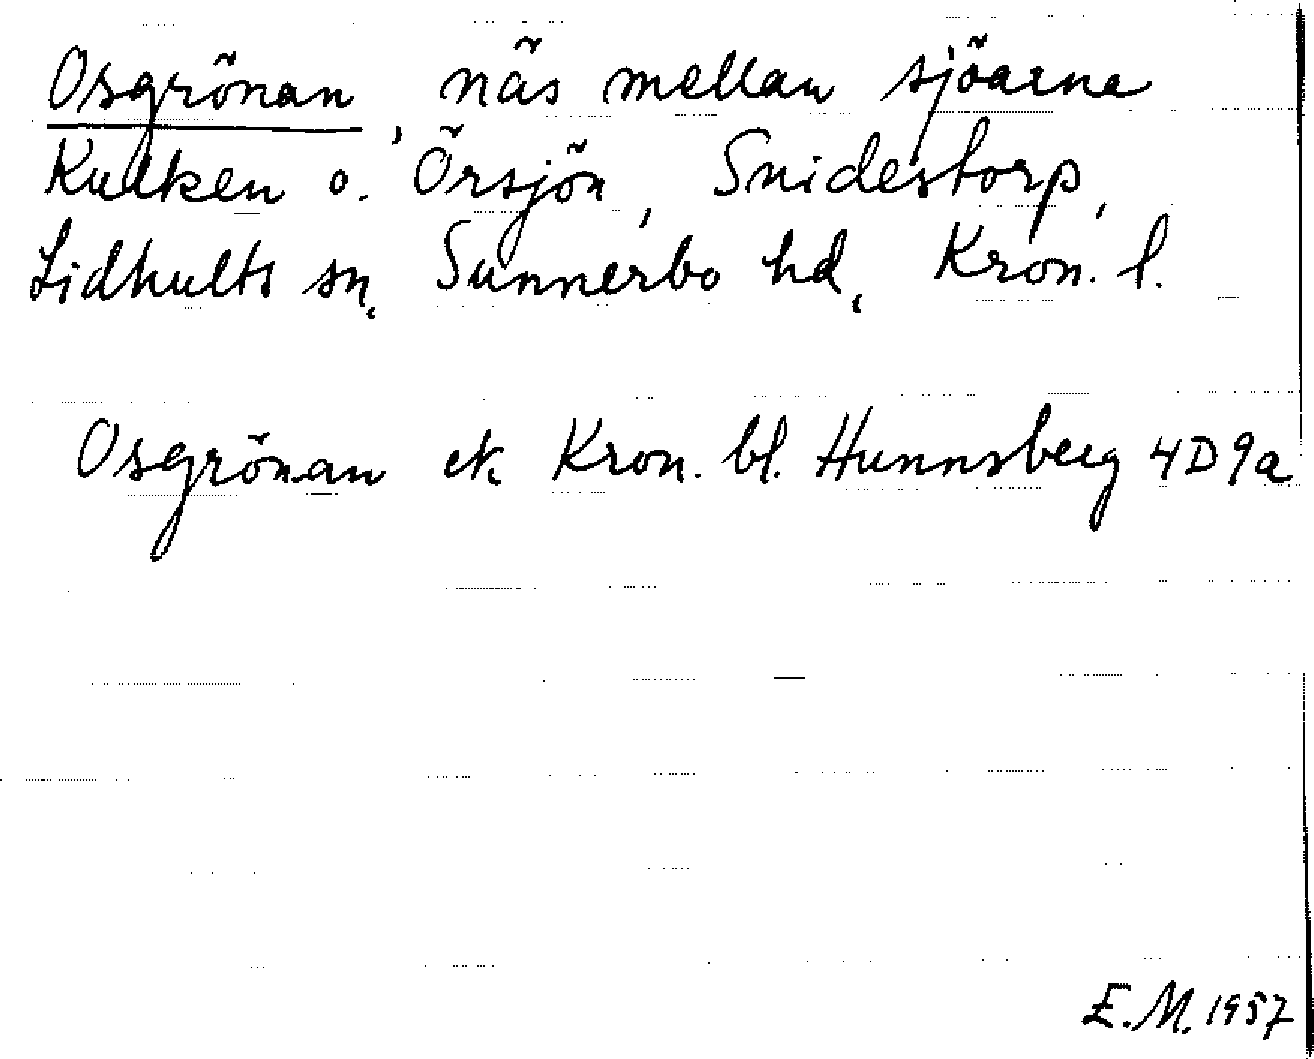 Osgrönan, näs mellan sjöarna
Kulken o. Örsjön, Snidestorp,
Lidhults sn, Sunnerbo hd, Kron. l.
Osgrönan ek. Kron. bl. Hunnsberg 4D9a
E.M. 1957